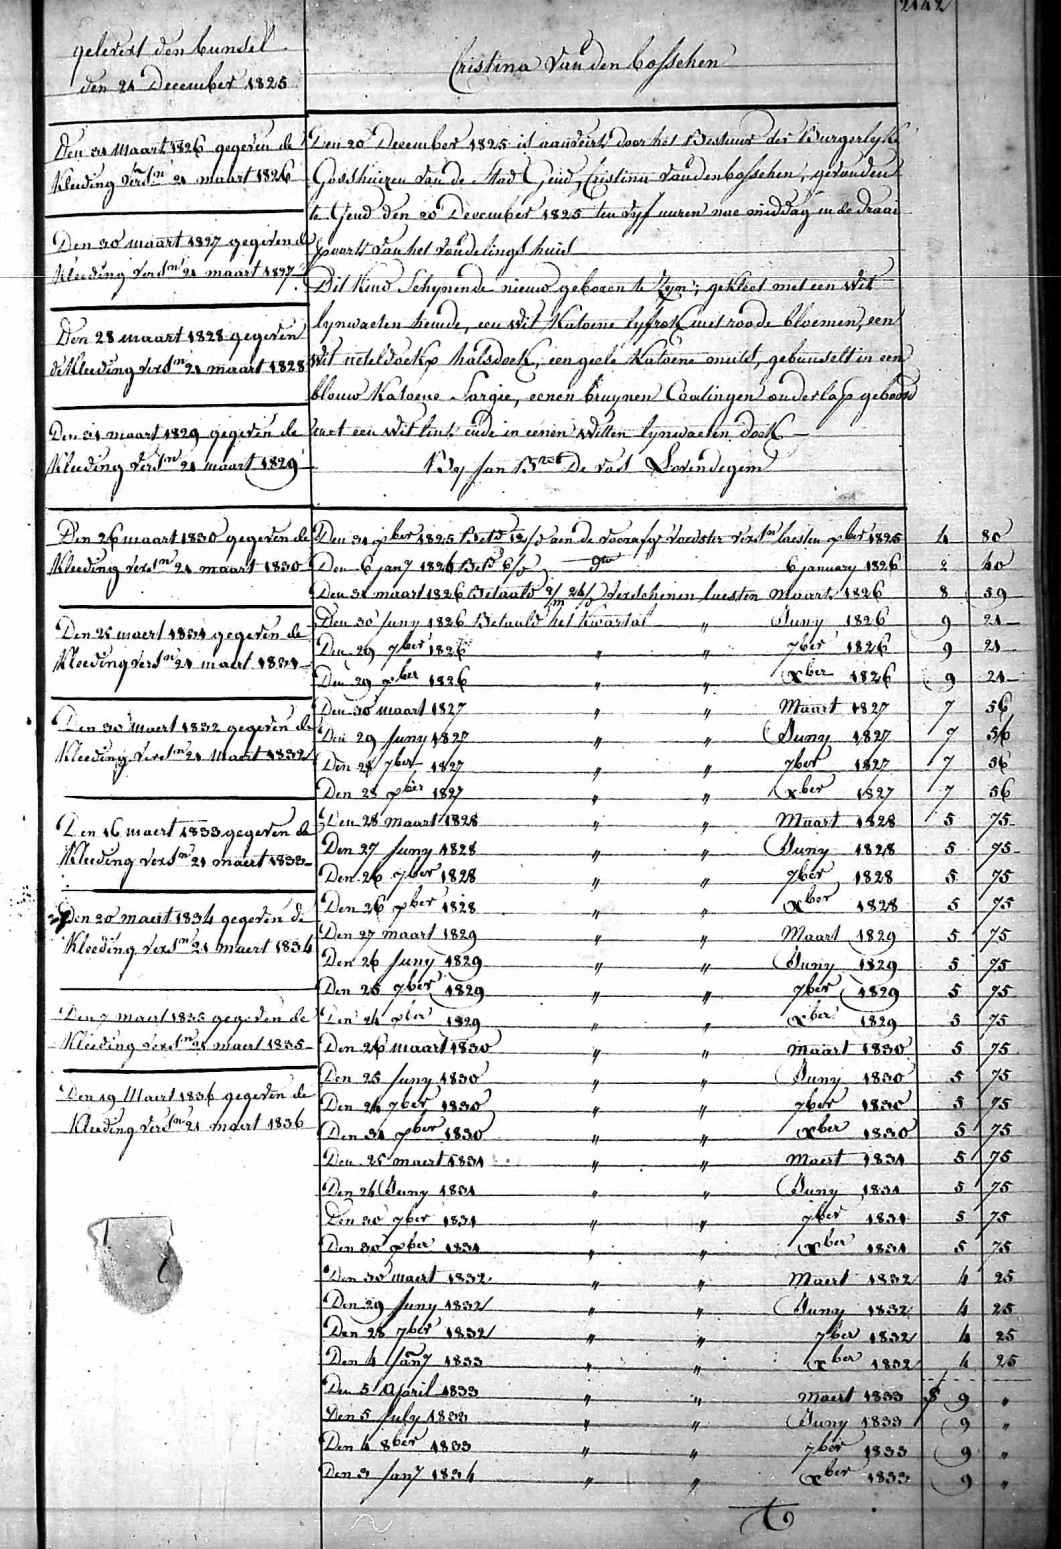 2142
gelevert den bundel
den 21 December 1825
Cristina Van den bosschen
Den 31 Maart 1826 gegeven de
Kleeding versn 21 maart 1826
Den 30 maart 1827 gegeven de
Kleeding versn 21 maart 1827
Den 28 maart 1828 gegeven
de Kleeding versn 21 maart 1828
Den 31 maart 1829 gegeven de
Kleeding versn 21 maart 1829
Den 26 maart 1830 gegeven de
Kleeding versn 21 maart 1830
Den 25 maert 1831 gegeven de
Kleeding versn 21 maert 1831
Den 30 maert 1832 gegeven de
Kleeding versn 21 Maart 1832
Den 16 maert 1833 gegeven de
Kleeding versn 21 maert 1833
Den 20 maert 1834 gegeven de
Kleeding versn 21 maert 1834
Den 7 maert 1835 gegeven de
Kleeding versn 21 maert 1835
Den 19 Maert 1836 gegeven de
Kleeding versn 21 maert 1836
Den 20 December 1825 is aanveird door het Bestuur der Burgerlyke
Godshuizen van de Stad Gend, Cristina Vandenbosschen, gevonden
te Gend den 20 December 1825 ten vyf uuren nae middag in de draai
poorte van het vondelings huis
Dit Kind Schynende nieuw geboren te Zyn; gekleet met een Wit
lynwaeten hemde, een Wit Katoene lyfrok met roode bloemen, een
Wit neteldoekx halsdoek, een geele Katoene muts, gebunselt in een
blouw Katoene Sargie, eenen bruynen onderlap geboord
met een Wit lint ende in eenen Witten lynwaeten doek
By Jan Bte De Vos Lovendegem
Den 31 xber 1825 Betd aen de voorafg voedster versn laesten xber 1825 4 80
Den 6 jany 1826 Betd do 6 january 1826 2 40
Den 31 maart 1826 Betaald Verschenen laesten Maart 1826 8 59
Den 30 Juny 1826 Betaald het Kwartal " Juny 1826 9 21
Den 29 7ber 1826 " " 7ber 1826 9 21
Den 29 xber 1826 " " Xber 1826 9 21
Den 30 maart 1827 " " Maart 1827 7 56
Den 29 Juny 1827 " " Juny 1827 7 56
Den 28 7ber 1827 " " 7ber 1827 7 56
Den 28 xber 1827 " " Xber 1827 7 56
Den 28 maart 1828 " " Maart 1828 5 75
Den 27 Juny 1828 " " Juny 1828 5 75
Den 26 7ber 1828 " " 7ber 1828 5 75
Den 26 xber 1828 " " Xber 1828 5 75
Den 27 maart 1829 " " Maart 1829 5 75
Den 26 Juny 1829 " " Juny 1829 5 75
Den 25 7ber 1829 " " 7ber 1829 5 75
Den 24 xber 1829 " " Xber 1829 5 75
Den 26 maart 1830 " " Maart 1830 5 75
Den 25 Juny 1830 " " Juny 1830 5 75
Den 24 7ber 1830 " " 7ber 1830 5 75
Den 31 xber 1830 " " Xber 1830 5 75
Den 25 maert 1831 " " Maert 1831 5 75
Den 24 Juny 1831 " " Juny 1831 5 75
Den 30 7ber 1831 " " 7ber 1831 5 75
Den 30 xber 1831 " " Xber 1831 5 75
Den 30 maert 1832 " " Maert 1832 4 25
Den 29 Juny 1832 " " Juny 1832 4 25
Den 28 7ber 1832 " " 7ber 1832 4 25
Den 4 Jany 1833 " " Xber 1832 4 25
Den 5 April 1833 " " Maert 1833 f 9 "
Den 5 July 1833 " " Juny 1833 9 "
Den 4 8ber 1833 " " 7ber 1833 9 "
Den 3 Jany 1834 " " Xber 1833 9 "